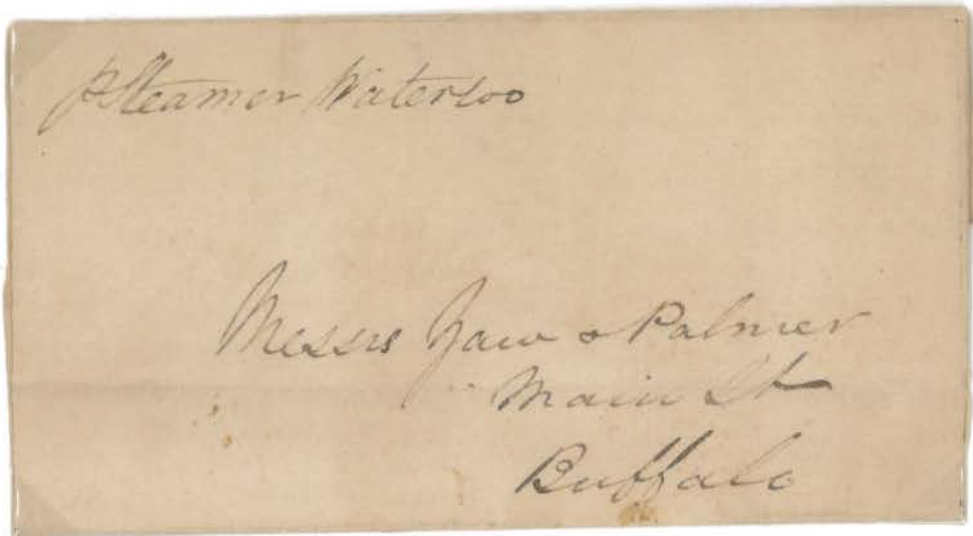 p Steamer Waterloo
Messrs Yaw & Palmer
Main St
Buffalo